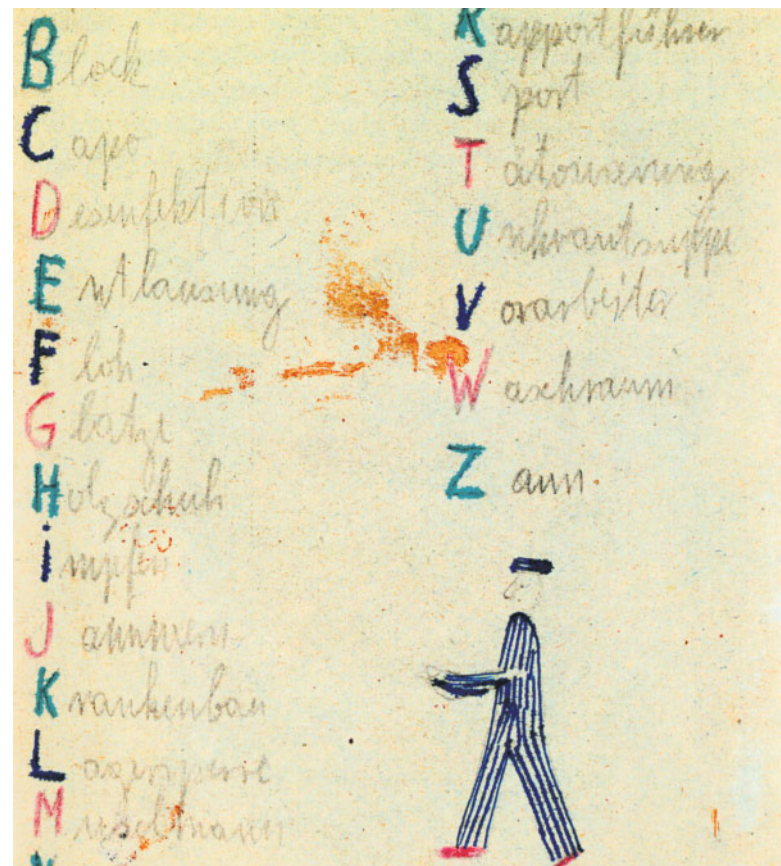 Block
Capo
Desinfektion
Entlausung
Floh
Glatze
Holzschuh
impfen
Jammern
Krankenbau
Lagersperre
Muselmann
Rapportführer
Sport
Tätowierung
Unkrautsuppe
Vorarbeiter
Waschraum
Zaun.